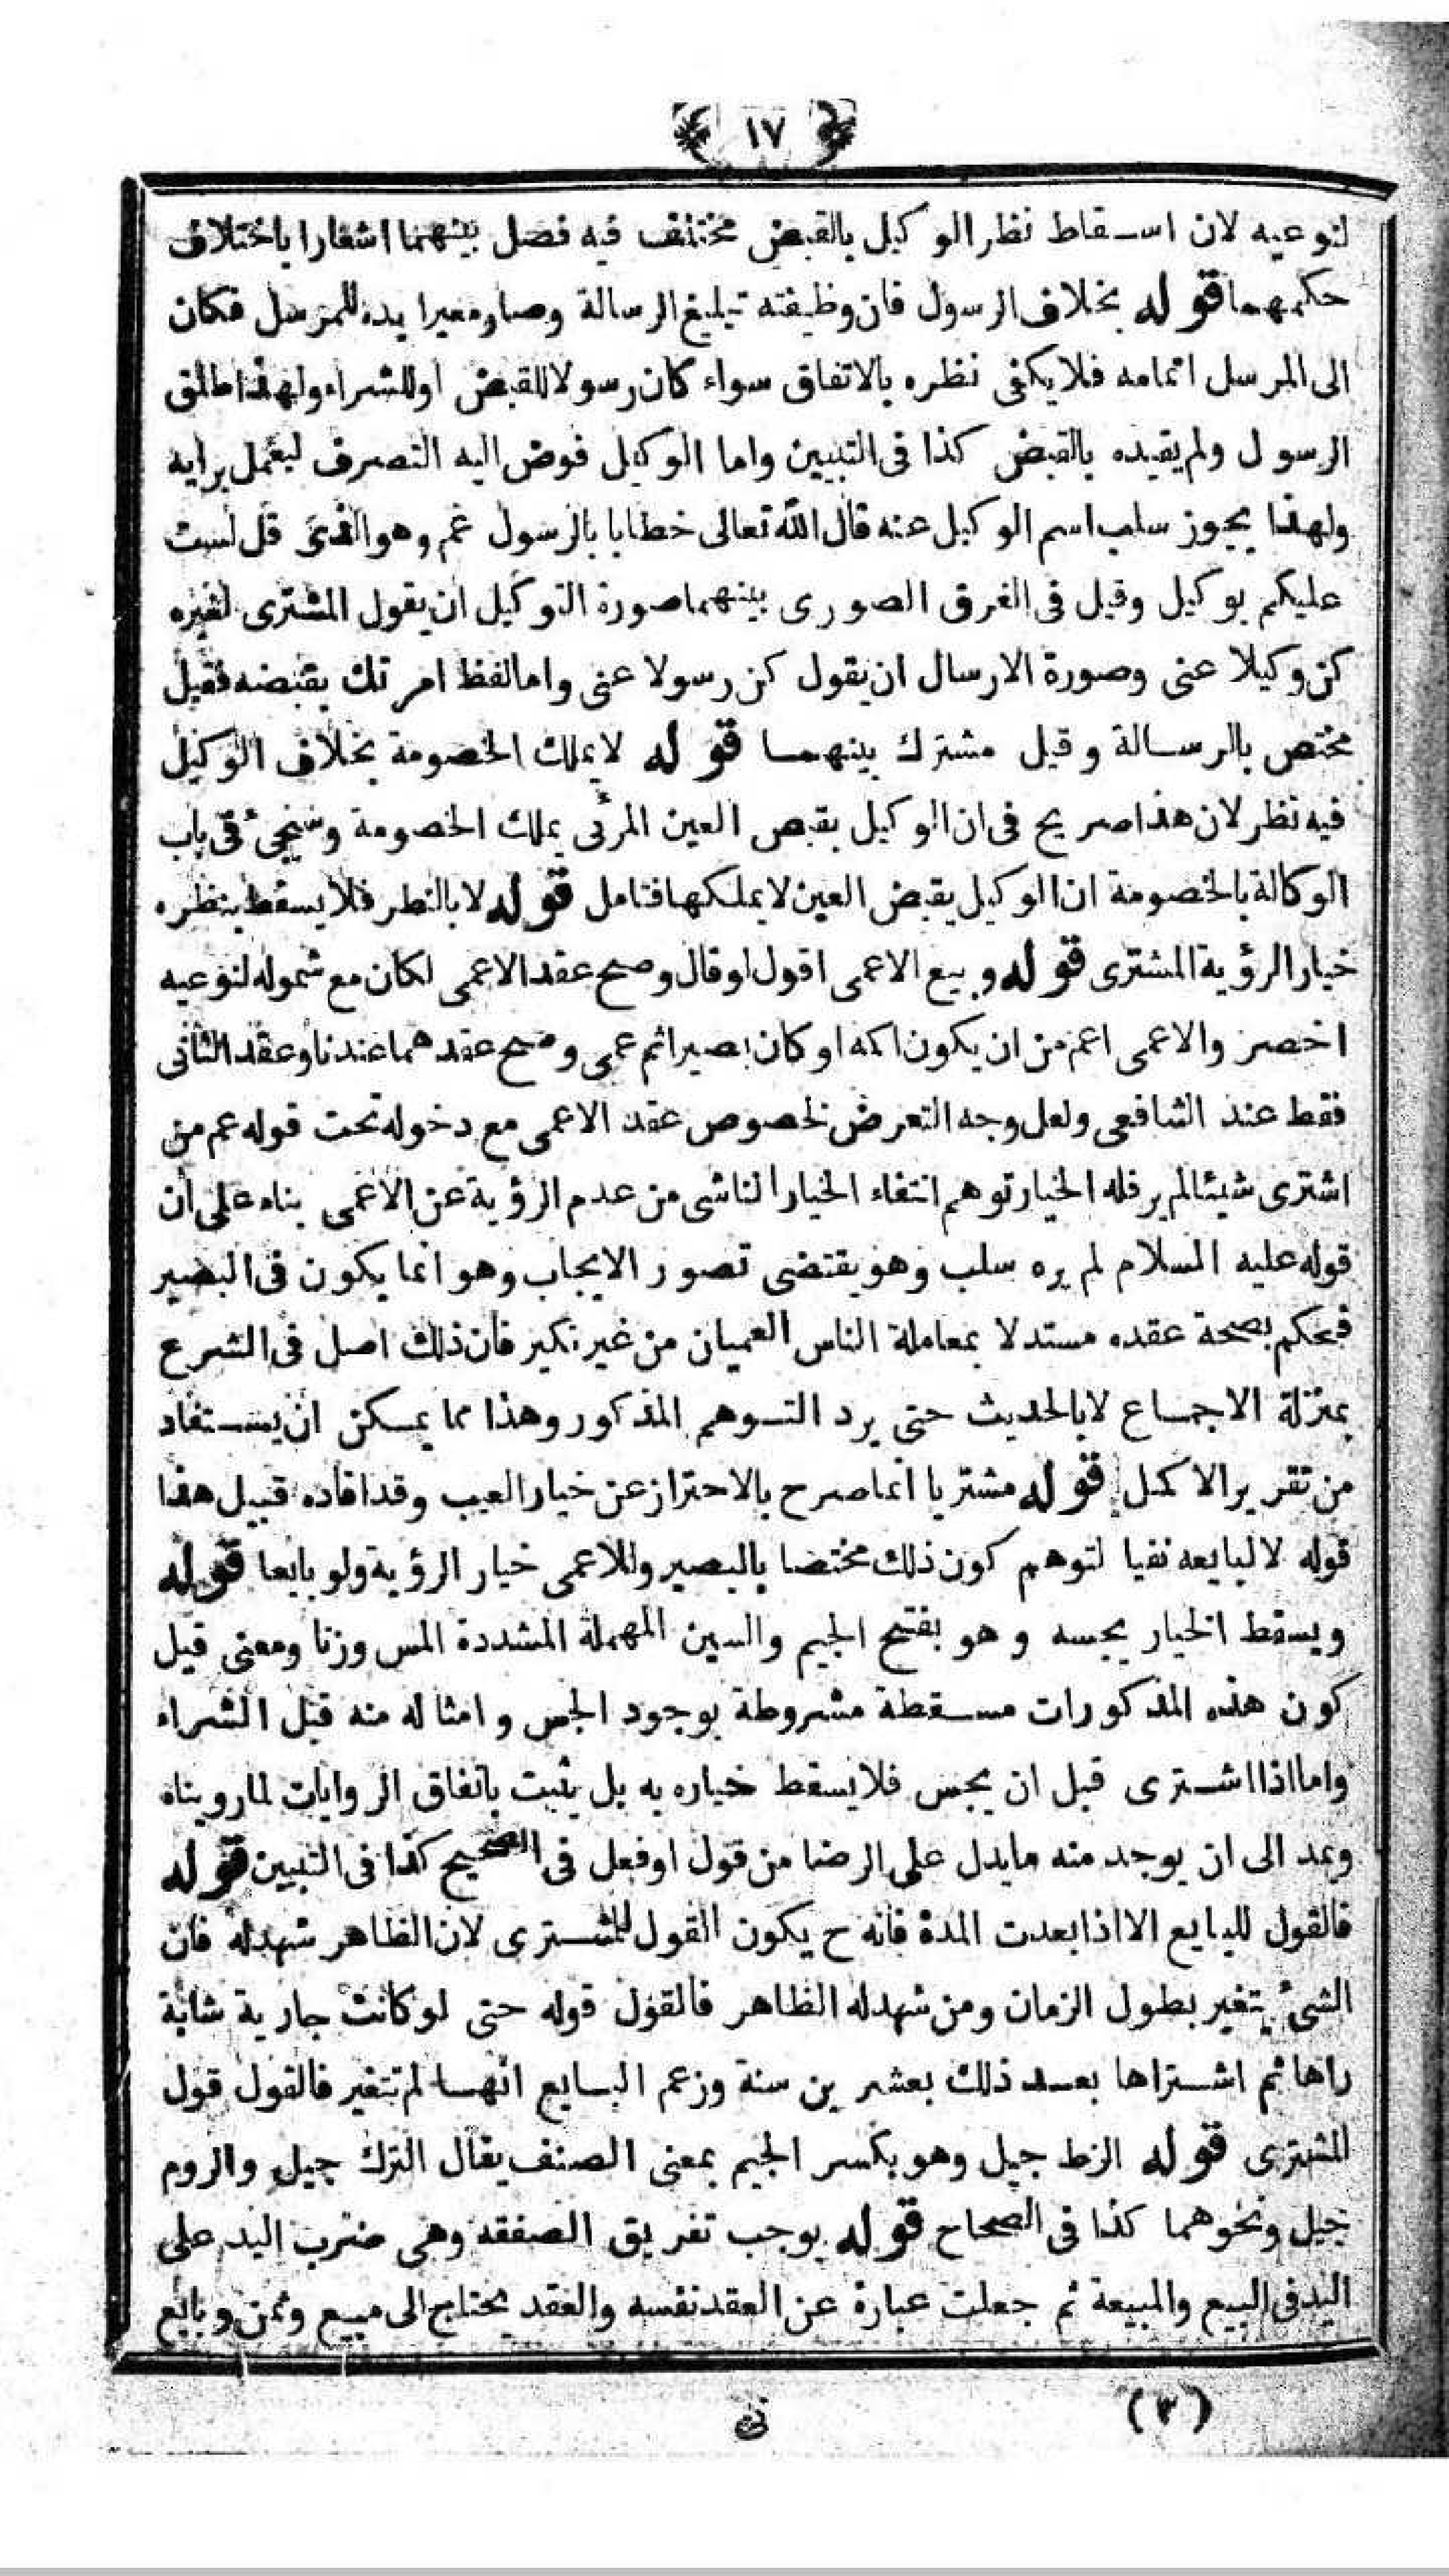 ١٧
لنوعيه لان اسقاط نظر الوكيل بالقبض مختلف فيه فصل بينهما اشعارا باختلاف
حكمهما قوله بخلاف الرسول فان وظيفته تبليغ الرسالة وصار معيرا يده للمرسل فكان
الى المرسل اتمامه فلا يكفى نظره بالاتفاق سواء كان رسولا للقبض او للشراء ولهذا اطلق
الرسول ولم يقيده بالقبض كذا فى التبيين واما الوكيل فوض اليه التصرف ليعمل برايه
ولهذا يجوز سلب اسم الوكيل عنه قال الله تعالى خطابا بالرسول عم وهو القدى قل لست
عليكم بوكيل وقيل فى الفرق الصورى بينهما صورة التوكيل ان يقول المشترى لغيره
كن وكيلا عنى وصورة الارسال ان يقول كن رسولا عنى واما لفظ امرتك بقبضه فقيل
مختص بالرسالة وقيل مشترك بينهما قوله لا يملك الخصومة بخلاف الوكيل
فيه نظر لان هذا صريح فى ان الوكيل بقبض العين المرئى يملك الخصومة وسيجئ فى باب
الوكالة بالخصومة ان الوكيل بقبض العين لا يملكها فتامل قوله لا بالنظر فلا يسقط بنظره
خيار الرؤية المشترى قوله وبيع الاعمى اقول لو قال وصح عقد الاعمى لكان مع شموله لنوعيه
اخصر والاعمى اعم من ان يكون اكمه او كان بصيرا ثم عمى وصح عقدهما عندنا وعقد الثانى
فقط عند الشافعى ولعل وجه التعرض لخصوص عقد الاعمى مع دخوله تحت قوله عم من
اشترى شيئا لم ير فله الخيار توهم انتفاء الخيار الناشى من عدم الرؤية عن الاعمى بناء على ان
قوله عليه السلام لم يره سلب وهو يقتضى تصور الايجاب وهو انما يكون فى البصير
فحكم بصحة عقده مستدلا بمعاملة الناس العميان من غير نكير فان ذلك اصل فى الشرع
بمنزلة الاجماع لا بالحديث حتى يرد التوهم المذكور وهذا مما يمكن ان يستفاد
من تقرير الاكمل قوله مشتريا انما صرح بالاحتراز عن خيار العيب وقد افاده قبيل هذا
قوله لا لبايعه نفيا لتوهم كون ذلك مختصا بالبصير وللاعمى خيار الرؤية ولو بايعا قوله
ويسقط الخيار بجسه وهو بفتح الجيم والسين المهملة المشددة المس وزنا ومعنى قيل
كون هذه المذكورات مسقطة مشروطة بوجود الجس وامثاله منه قبل الشراء
واما اذا اشترى قبل ان يجس فلا يسقط خياره به بل يثبت باتفاق الروايات لما رويناه
ويمد الى ان يوجد منه ما يدل على الرضا من قول او فعل فى الصحيح كذا فى التبيين قوله
فالقول للبايع الا اذا بعدت المدة فانه ح يكون القول للمشترى لان الظاهر شهد له فان
الشئ يتغير بطول الزمان ومن شهد له الظاهر فالقول قوله حتى لو كانت جارية شابة
راها ثم اشتراها بعد ذلك بعشرين سنة وزعم البايع انها لم تتغير فالقول قول
المشترى قوله الزط جيل وهو بكسر الجيم بمعنى الصنف يقال الترك جيل والروم
جيل ونحوهما كذا فى الصحاح قوله يوجب تفريق الصفقه وهى ضرب اليد على
اليد فى البيع والمبيعة ثم جعلت عبارة عن العقد نفسه والعقد يحتاج الى مبيع وثمن وبايع
(٣)